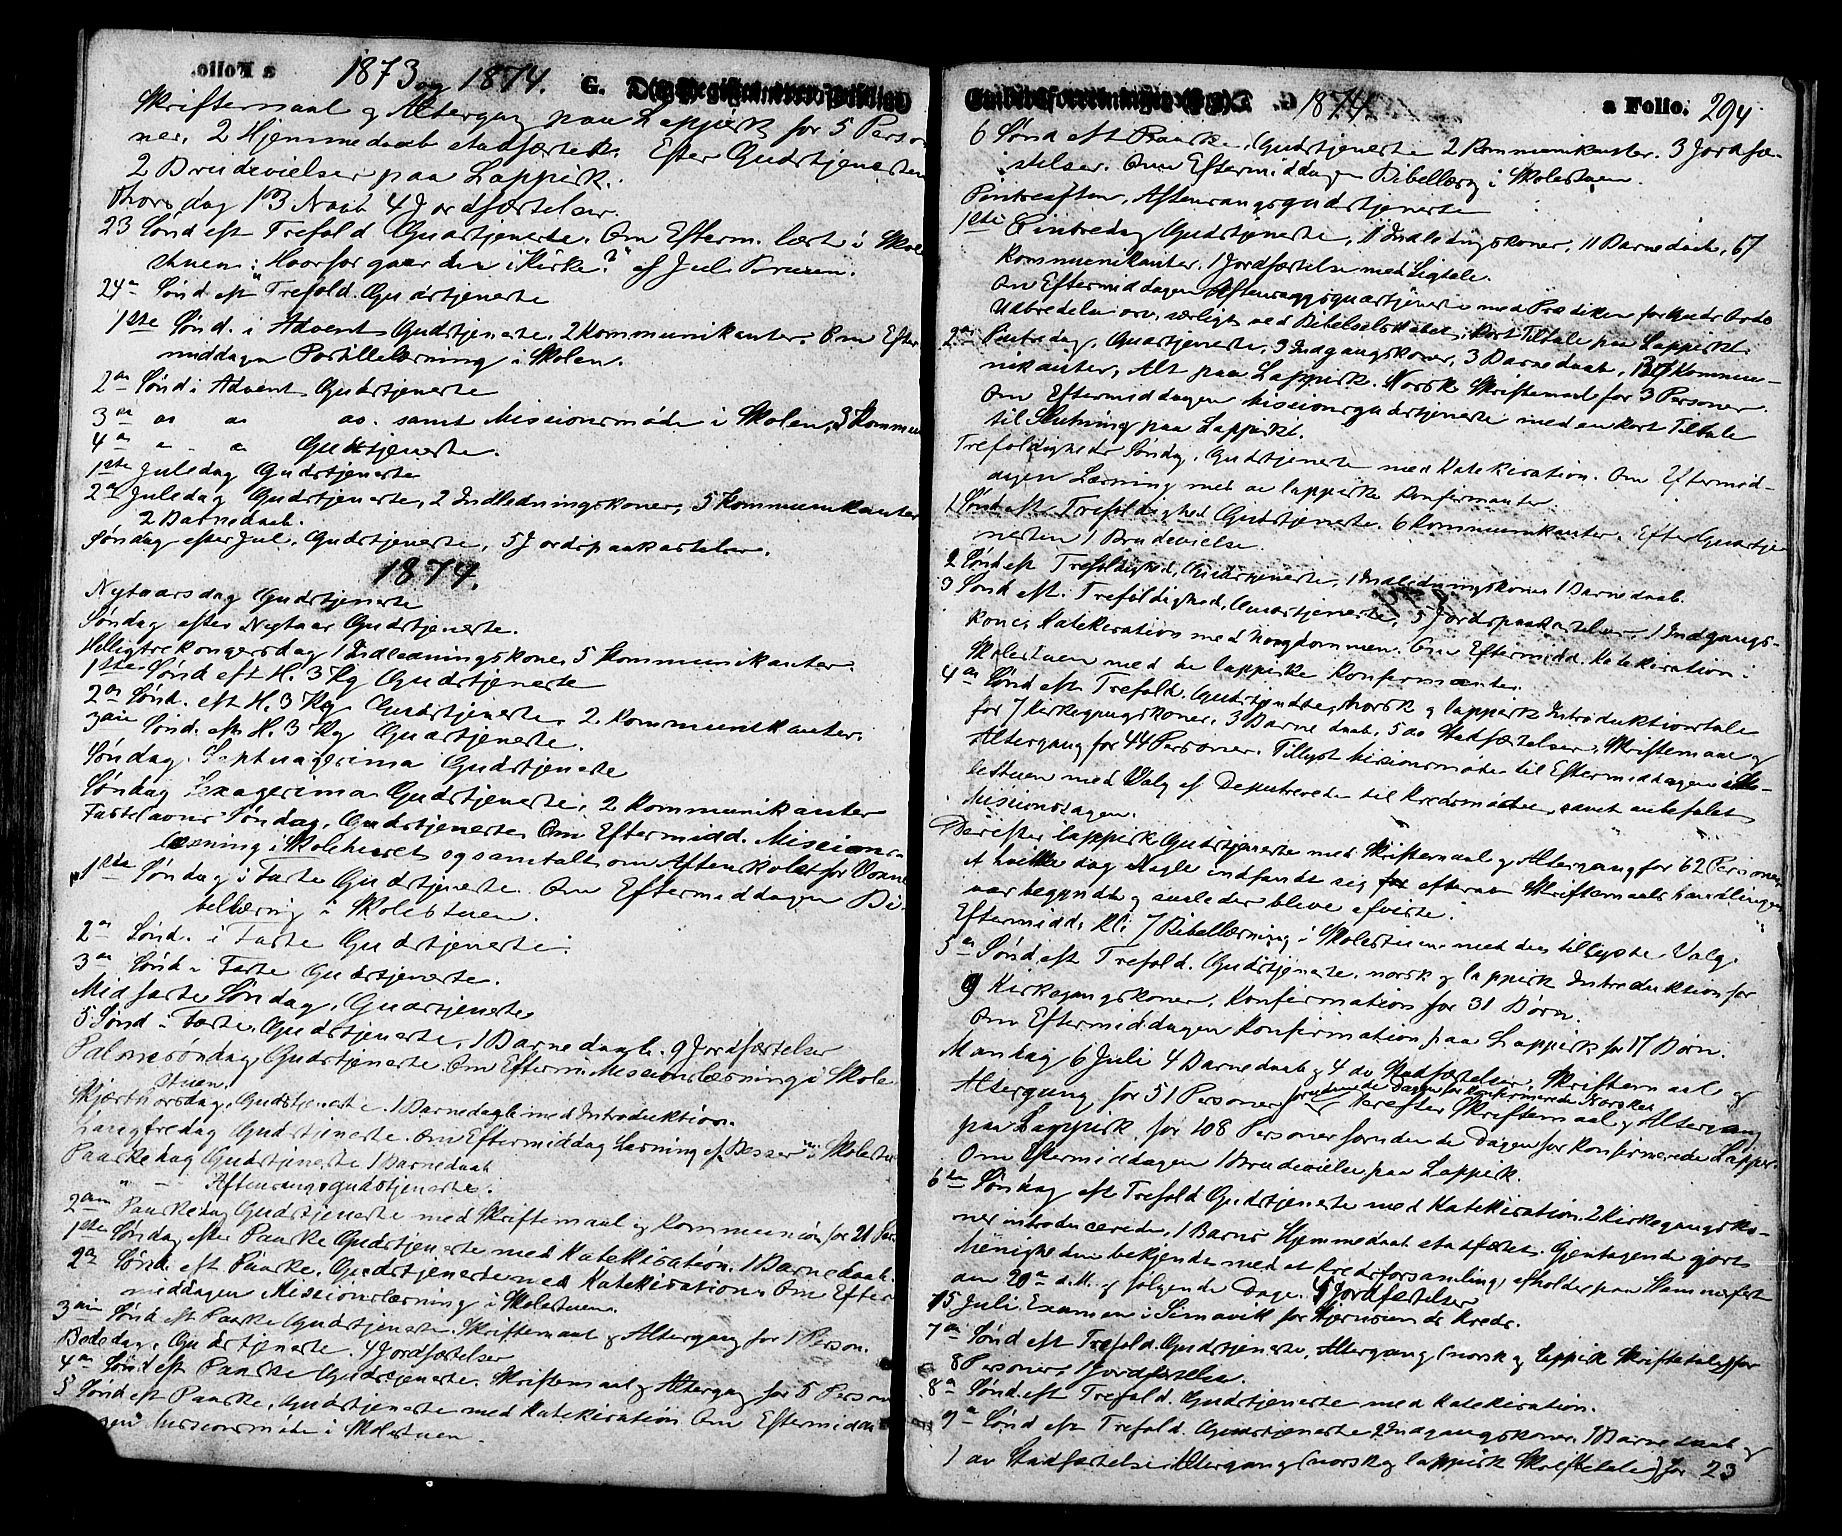 1873 og 1874.
Skriftemaal og Altergang paa Lappisk for 5 Perso-
ner, 2 Hjemmedaab stadfæstede. Efter Gudstjenesten
2 Brudevielser paa Lappisk.
Thorsdag 13 Novb 4 Jordfæstelser.
23 Sønd eft Trefold Gudstjeneste. Om Efterm. læst i Skole
stuen: "Hvorfor gaar du i Kirke?" af Jul. Bruun.
24de Sønd. eft Trefold. Gudstjeneste
1ste Sønd. i Advent Gudstjeneste, 2 Kommunikanter. Om Efter
middagen Postillelæsning i Skolen.
2den Sønd i Advent Gudstjeneste
3die do do do. samt Missionsmøde i Skolen, 3 Kommun
4de " " do Gudstjeneste.
1ste Juledag Gudstjeneste
2den Juledag Gudstjeneste, 2 Indledningskoner, 5 Kommunikanter
2 Barnedaab.
Søndag efter Jul, Gudstjeneste, 5 Jordspaakastelser.
1874.
Nytaarsdag Gudstjeneste
Søndag efter Nytaar Gudstjeneste.
Helligtrekongersdag 1 Indledningskone 5 Kommunikanter
1ste Sønd eft H. 3 Kg Gudstjeneste
2den Sønd. eft H. 3 Kg Gudstjeneste, 2 Kommunikanter.
3die Sønd. eft H. 3 Kg Gudstjeneste.
Søndag Septuagesima Gudstjeneste
Søndag Sexagesima Gudstjeneste, 2 Kommunikanter
Fastelavns Søndag, Gudstjeneste Om Eftermidd. Missions-
læsning i Skolehuset og samtalt om Aftenskolet for Voxne
1ste Søndag i Faste Gudstjeneste. Om Eftermiddagen Bi-
bellæsning i Skolestuen.
2den Sønd. i Faste Gudstjeneste.
3die Sønd i Faste Gudstjeneste.
Midfaste Søndag, Gudstjeneste
5 Sønd i Faste, Gudstjeneste, 1 Barnedaab. 9 Jordfæstelser
Palmesøndag, Gudstjeneste Om Efterm Missionslæsning i Skole
stuen
Skjærthorsdag, Gudstjeneste. 1 Barnedaab med Introduktion.
Langfredag Gudstjeneste. Om Eftermiddag Læsning af Besser i Skolestu
Paaskedag Gudstjeneste 1 Barnedaab
" - Aftensangsgudstjeneste.
2den Paaskedag Gudstjeneste med Skriftemaal og Kommunion for 21 Per.
1ste Søndag efter Paaske Gudstjeneste med Katekisation. 1 Barnedaab.
2den Sønd. eft Paaske. Gudstjeneste med Katekisation. Om Efter
middagen Missionslæsning i Skolestuen.
3die Sønd eft Paaske Gudstjeneste. Skriftemaal og Altergang for 1 Person.
Bededag, Gudstjeneste. 4 Jordfæstelser
4de Sønd eft Paaske Gudstjeneste. Skriftemaal og Altergang for 8 Person
5 Sønd eft Paaske, Gudstjeneste med Katekisation Om Eftermidda
gen Missionsmøde i Skolestuen.
1874.
a Folio. 294
6 Sønd eft Paaske, Gudstjeneste 2 Kommunikanter. 3 Jordfæ-
stelser. Om Eftermiddagen Bibellæsn i Skolestuen.
Pintseaften, Aftensangsgudstjeneste
1ste Pintsedag Gudstjeneste, 11 Indledningskoner, 11 Barnedaab, 67
Kommunikanter. 1 Jordfæstelse med Ligtale.
Om Eftermiddagen Aftensangsgudstjeneste med Prædiken for Guds Ords
Udbredelse især ved Bibelselskabet, kort Tiltale paa Lappiskt.
2den Pintsedag, Gudstjeneste, 3 Indgangskoner, 3 Barnedaab, Kommu-
nikanter, Alt paa Lappisk. Norsk Skriftemaal for 3 Personer.
Om Eftermiddagen Missionsgudstjeneste med en kort Tiltale
til Slutning paa Lappiskt.
Trefoldigheds Søndag, Gudstjeneste med Katekisation. Om Eftermid-
dagen Læsning med de lappiske Konfirmanter.
1 Sønd eft Trefoldighed Gudstjeneste. 6 Kommunikanter. Efter Gudstje
nesten 1 Brudevielse.
2 Sønd eft Trefoldighed, Gudstjeneste, 1 Indledningskone 1 Barnedaab.
3 Sønd eft. Trefoldighed, Gudstjeneste, 5 Jordspaakastelser, 1 Indgangs-
kone, Katekisation med Ungdommen. Om Eftermidd. Katekisation i
Skolestuen med de lappiske Konfirmanter.
4de Sønd eft Trefold. Gudstjeneste, norsk og lappisk Introduktionstale
for 7 Kirkegangskoner, 3 Barnedaab, 5 do Stadfæstelser, Skriftemaal og
Altergang for 44 Personer. Tillyst Missionsmøde til Eftermiddagen i Sko-
lestuen med Valg af Deputerede til Kredsmødet, samt anbefalet
Missionssagen.
Derefter lappisk Gudstjeneste med Skriftemaal og Altergang for 62 Personer
At hvilke dag Nogle indfandt sig efterat Skriftemaalshandlingen
var begyndt og saaledes bleve afviste.
Eftermidd. Kl. 7 Bibellæsning i Skolestuen med den tillyste Valg.
5de Sønd. eft Trefold. Gudstjeneste. norsk og lappisk Introduktion for
9 Kirkegangskoner, Konfirmation for 31 Børn.
Om Eftermiddagen Konfirmation paa Lappisk for 17 Børn.
Mandag 6 Juli 4 Barnedaab og 4 do Stadfæstelser, Skriftemaal og
Altergang for 51 Personer foruden de Dagen før konfirmerede Norske
derefter Skriftemaal og Altergang
paa Lappisk for 108 Personer foruden de Dagen før konfirmerede Lapper.
Om Eftermiddagen 1 Brudevielse paa Lappisk.
6te Søndag eft Trefold Gudstjeneste med Katekisation. 2 Kirkegangsko-
ner introducerede, 1 Barns Hjemmedaab stadfæstet. Gjentagende gjort
Menigheden bekjendt med at Kredsforsamling afholdes paa Hammerfest
den 20de d. M. og følgende Dage. 4 Jordfæstelser
15 Juli Examen i Simavik for Kredts.
7de Sønd eft Trefold. Gudstjeneste, Altergang (norsk og lappisk Skriftetale) for
8 Personer, 1 Jordfæstelse.
8de Sønd. eft Trefold. Gudstjeneste med Katekisation.
9de Sønd eft Trefold. Gudstjeneste 2 Indgangskoner, 1 Barnedaab og
1 do Stadfæstelse. Altergang (norsk og lappisk Skriftetale) for 23